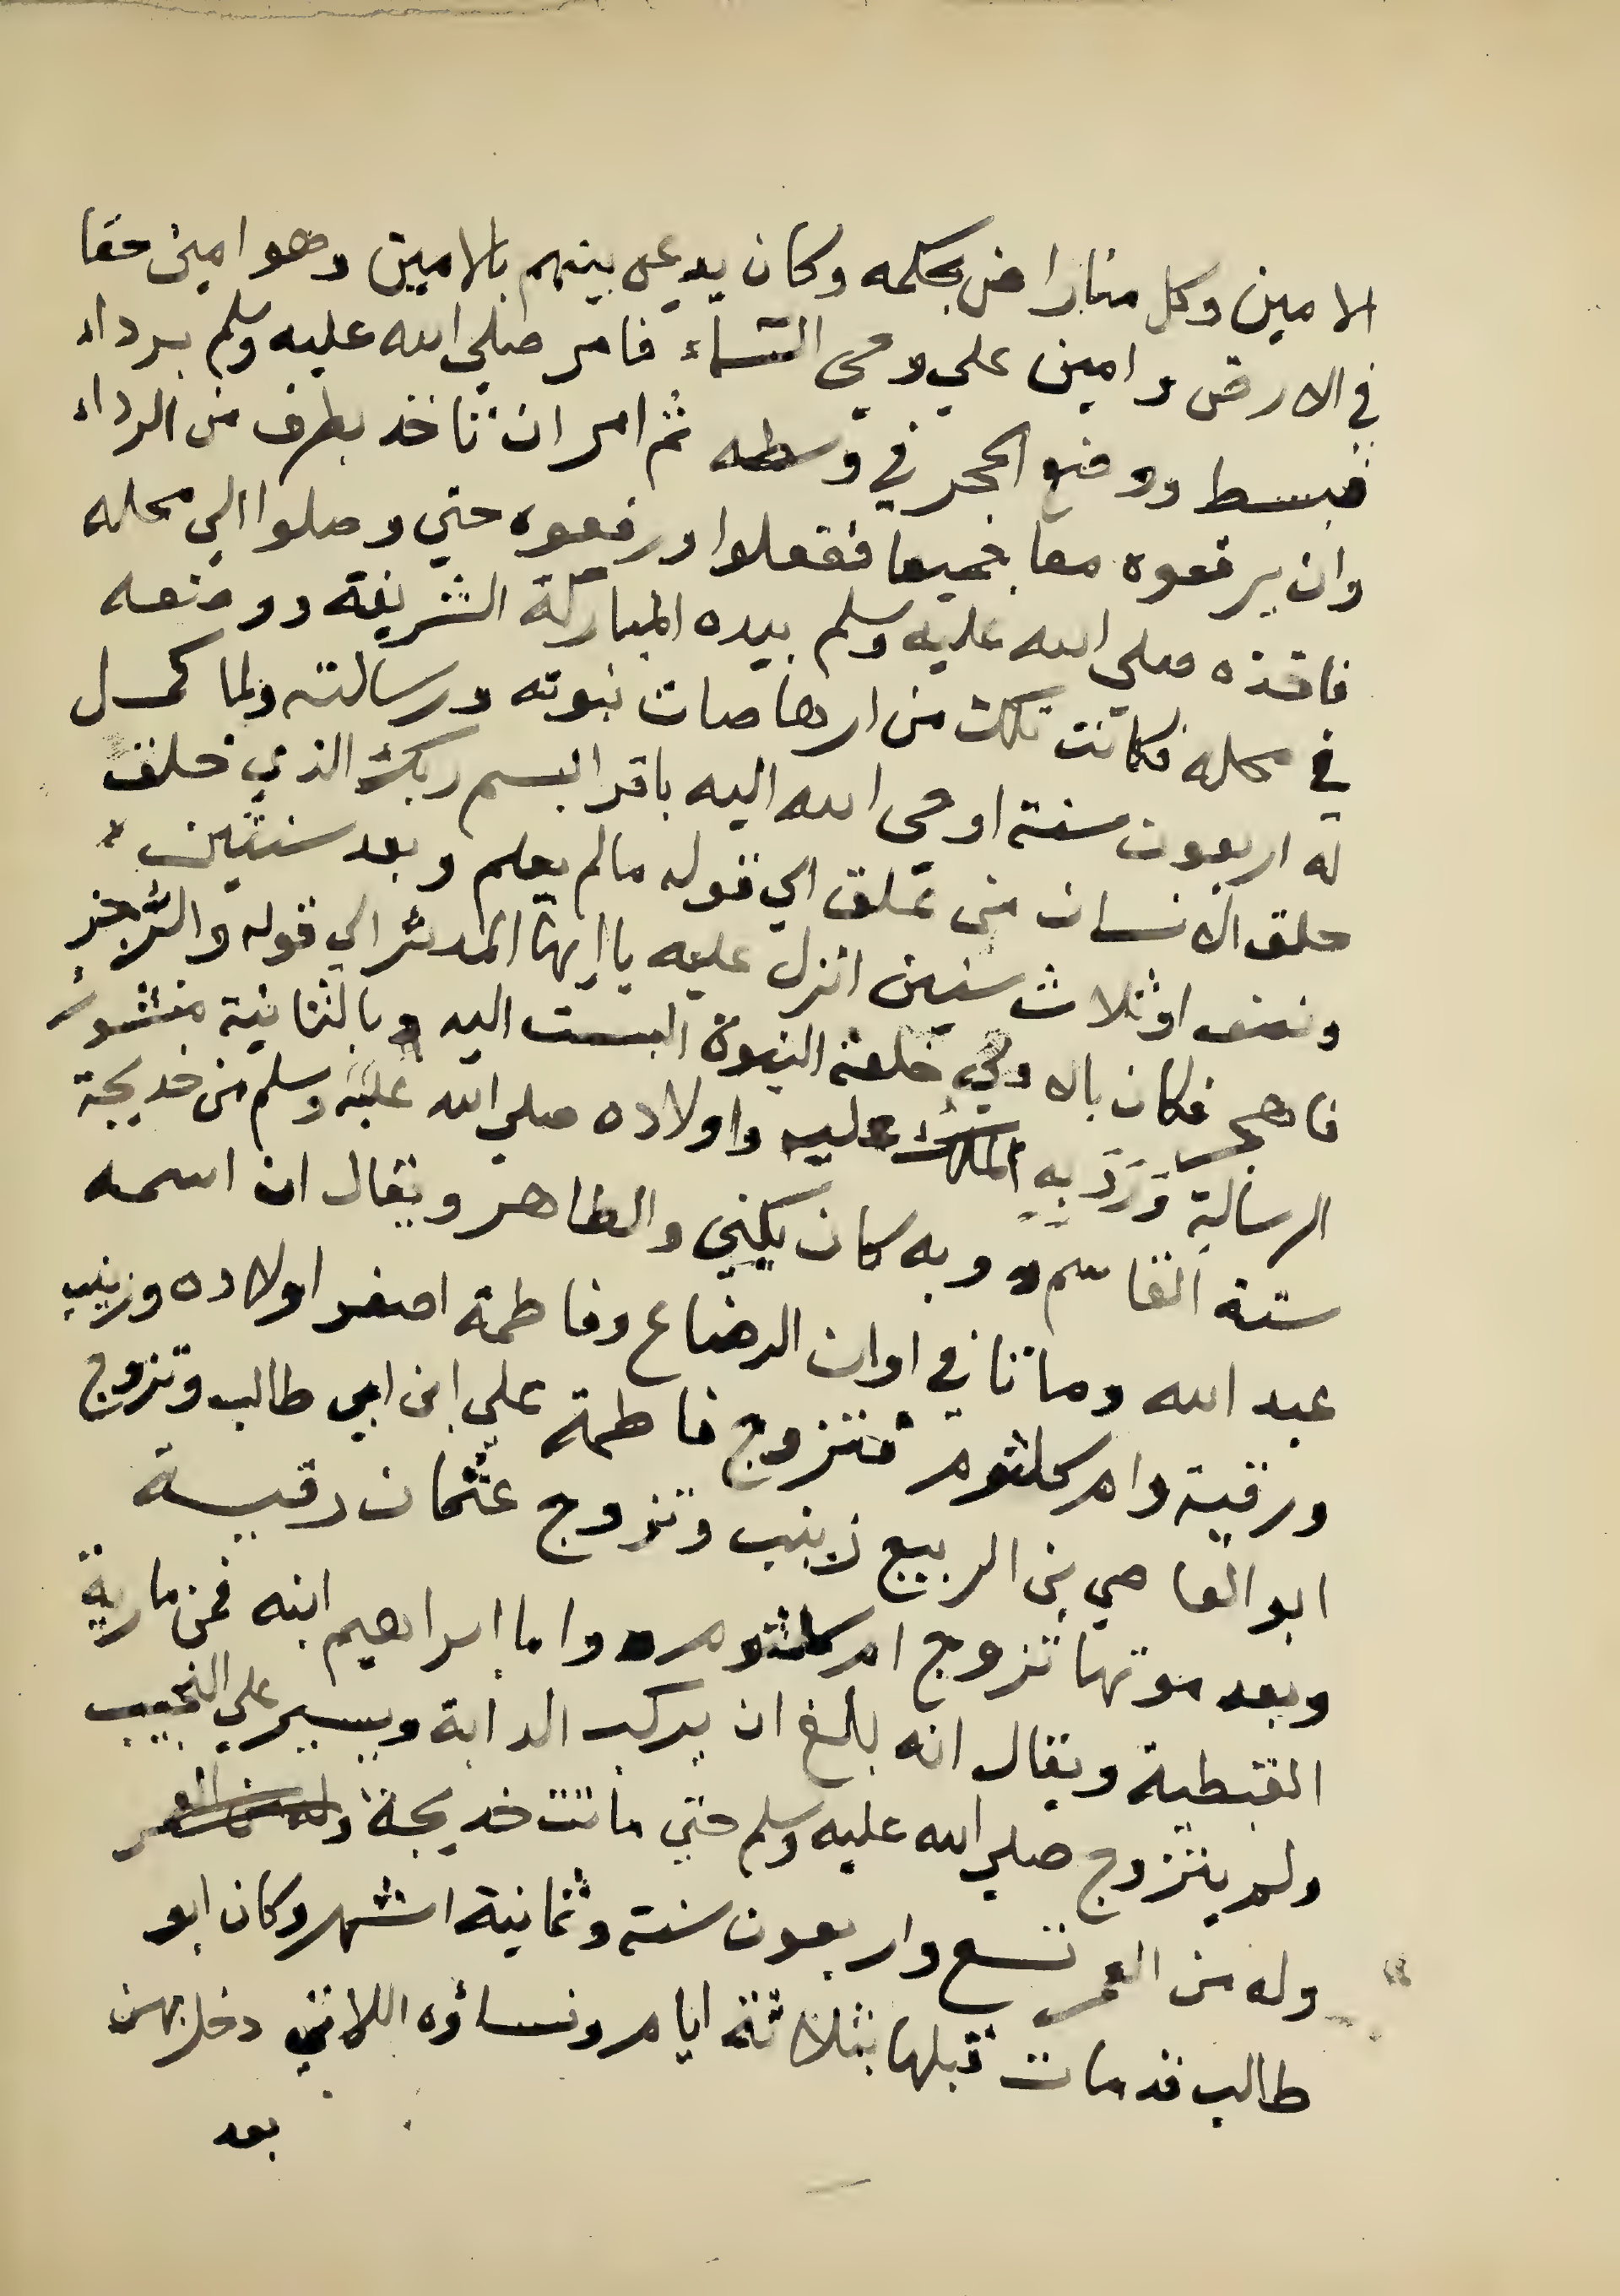 الامين وكل منا راض بحكمه وكان يدعى بينهم بالامين وهو امين حقا
في الارض وامين علي وحي السماء فامر صلي الله عليه وسلم برداء
فبسط ووضع الحجر في وسطه ثم امر ان تاخذ بطرف من الرداء
وان يرفعوه معا جميعا ففعلوا ورفعوه حتي وصلوا الي محله
فاخذه صلي الله عليه وسلم بيده المباركة الشريفة ووضعه
في محله فكانت تلك من ارهاصات نبوته ورسالته ولما كمل
له اربعون سنة اوحى الله اليه باقرا بسم ربك الذي خلق
خلق الانسان من علق الي قوله مالم يعلم وبعد سنتين
ونصف او ثلاث سنين انزل عليه يا ايها المدثر الي قوله والرجز
فاهجر فكان بالاولي خلعة النبوة البست اليه وبالثانية منشور
الرسالة وَرَدَ بِهِ الملكُ عليه واولاده صلي الله عليه وسلم من خديجة
ستة القاسم وبه كان يكني والطاهر ويقال ان اسمه
عبد الله وماتا في اوان الرضاع وفاطمة اصغر اولاده وزينب
ورقية وام كلثوم فتزوج فاطمة علي ابن ابي طالب وتزوج
ابو العاصي بن الربيع زينب وتزوج عثمان رقيسة
وبعد موتها تزوج ام كلثوم واما ابراهيم ابنه فمن مارية
القبطية ويقال انه بلغ ان يركب الدابة ويسير علي النجيب
ولم يتزوج صلي الله عليه وسلم حتي ماتت خديجة وله من العمر
وله من العمر تسع واربعون سنة وثمانية اشهر وكان ابو
طالب قد مات قبلها بثلاثة ايام ونساؤه اللاتي دخل بهن
بعد